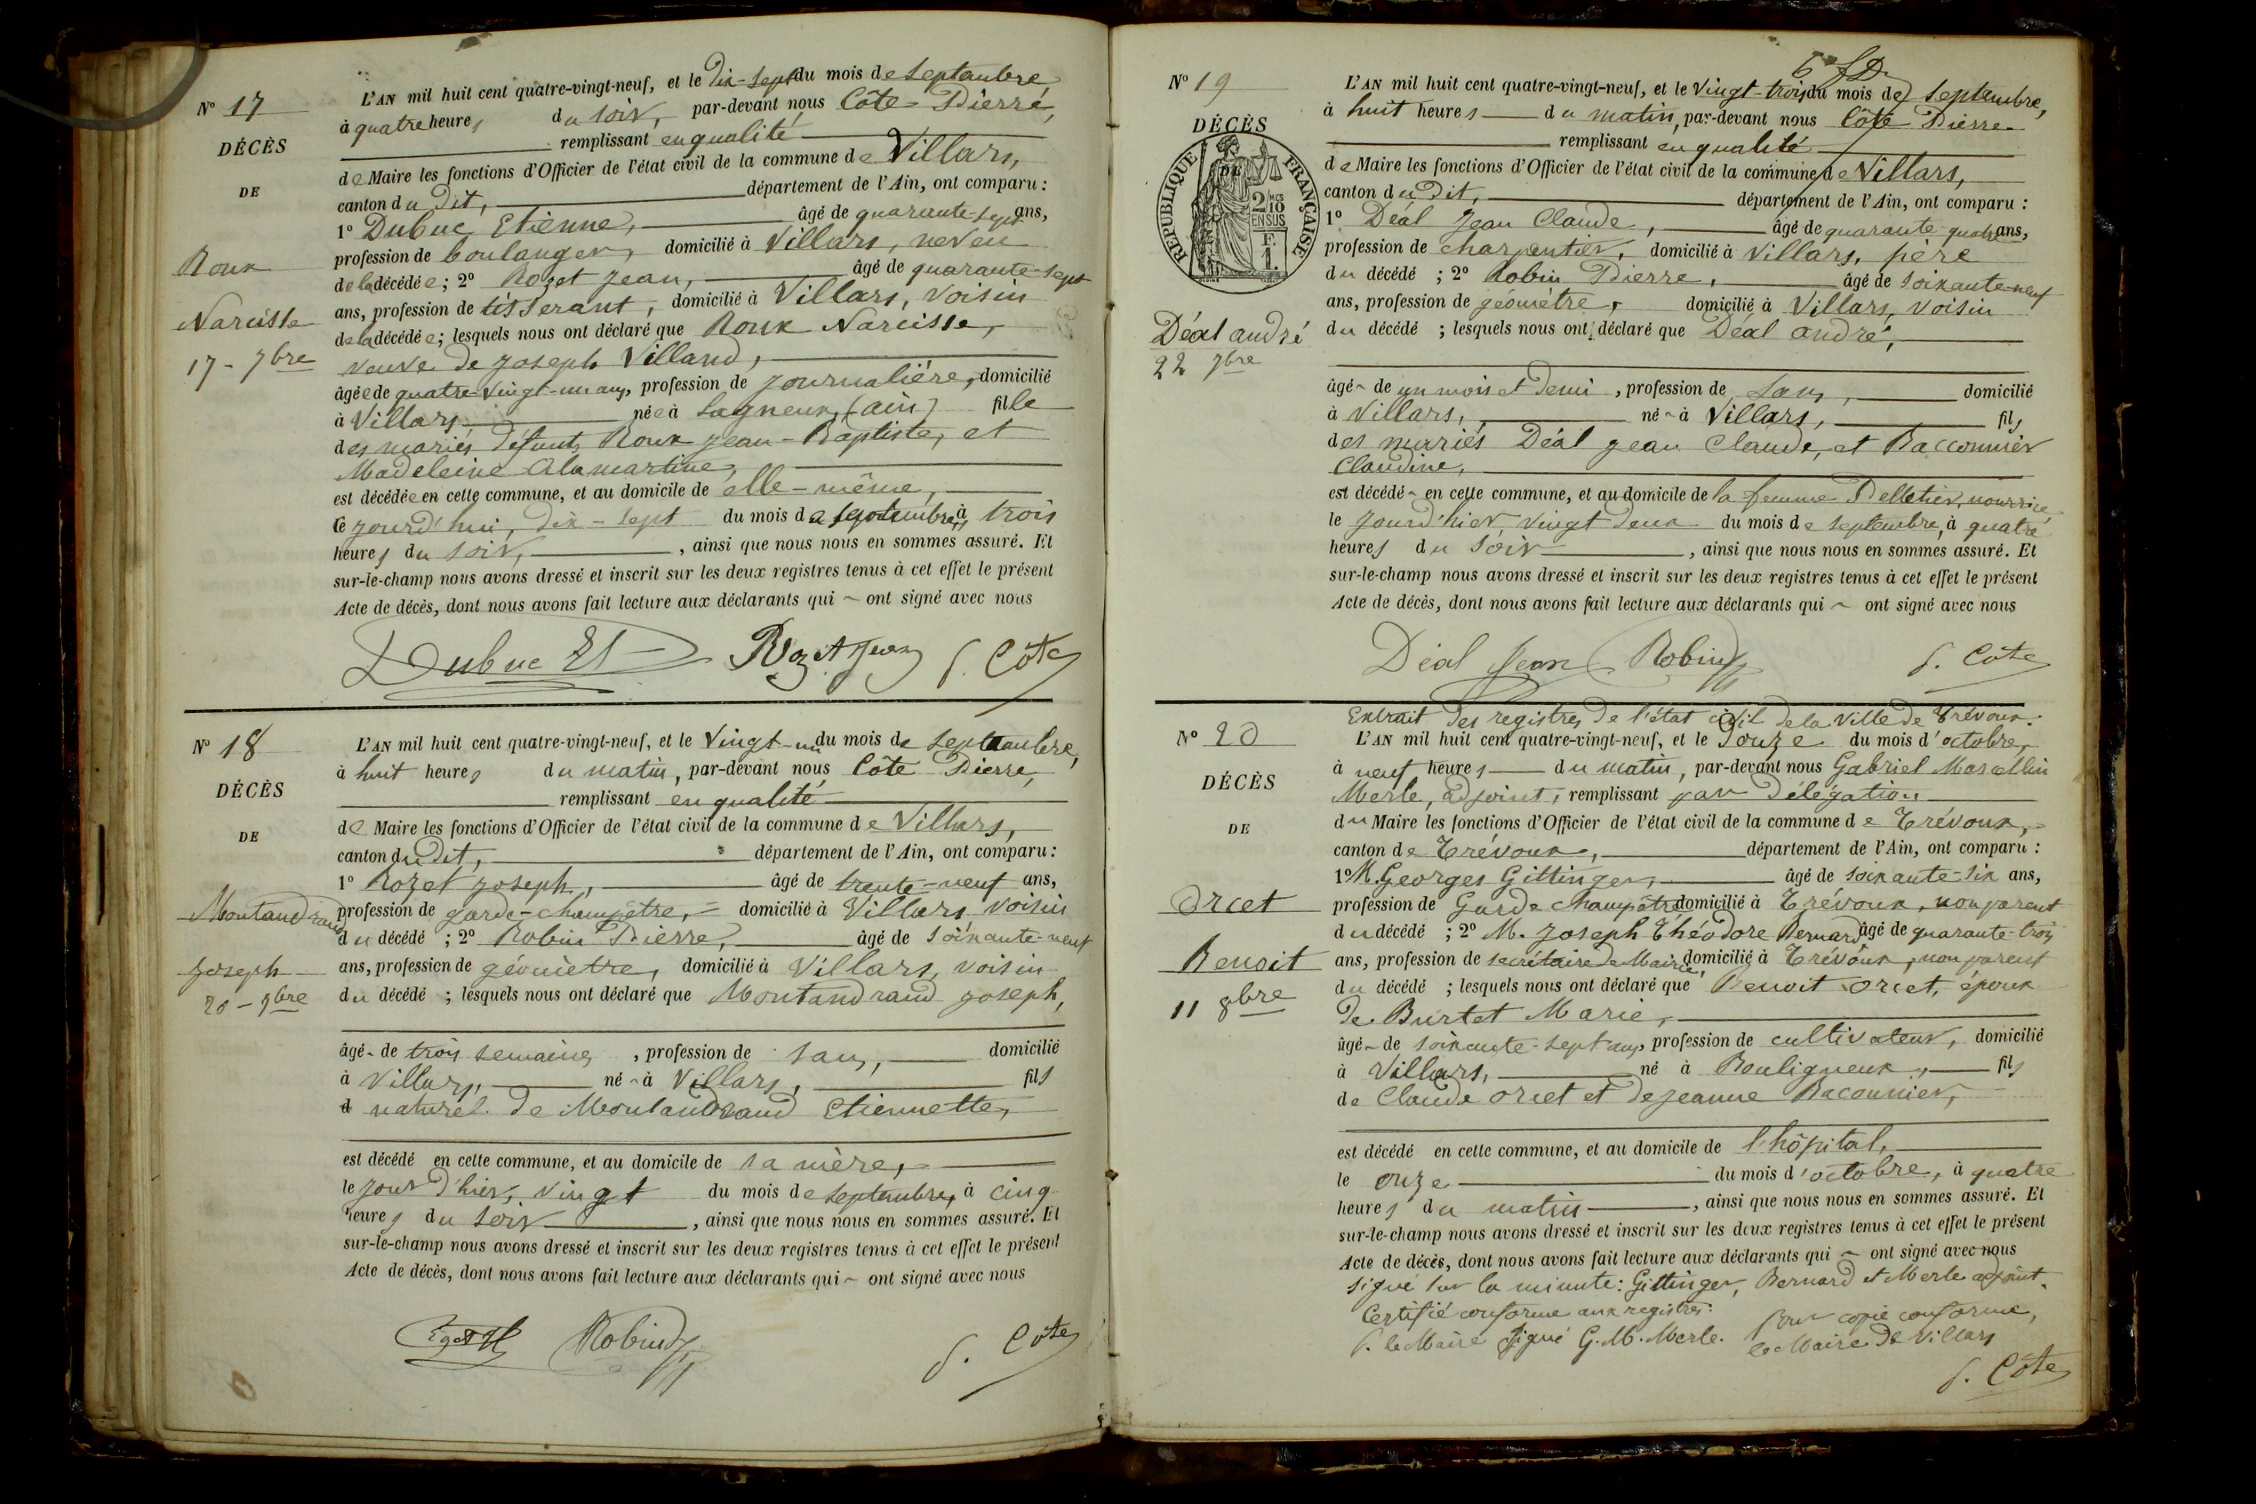 N° 17
DÉCÈS
DE
Roux
Narcisse
17 - 7bre
L'AN mil huit cent quatre-vingt-neuf, et le Dix-sept du mois de Septembre
à quatre heures du soir, par-devant nous Côte Pierre,
remplissant en qualité
de Maire les fonctions d'Officier de l'état civil de la commune de Villars,
canton du dit, département de l'Ain, ont comparu :
1° Dubuc Etienne, âgé de quarante-sept ans,
profession de boulanger, domicilié à Villars, neveu
de la décédée ; 2° Rozet Jean, âgé de quarante-sept
ans, profession de tisserant, domicilié à Villars, voisin
de la décédée ; lesquels nous ont déclaré que Roux Narcisse,
veuve de Joseph Villand,
âgée de quatre-vingt-un ans, profession de journalière, domicilié
à Villars née à Sagneux, (ain) fille
des mariés défunts Roux Jean-Baptiste, et
Madeleine Alamartine,
est décédée en cette commune, et au domicile de elle-même,
ce jourd'hui, dix-sept du mois de septembre, à trois
heures du soir, , ainsi que nous nous en sommes assuré. Et
sur-le-champ nous avons dressé et inscrit sur les deux registres tenus à cet effet le présent
Acte de décès, dont nous avons fait lecture aux déclarants qui ~ ont signé avec nous
Dubuc Et Rozet Jean P. Côte
N° 18
DÉCÈS
DE
Montandraud
Joseph
20 - 7bre
L'AN mil huit cent quatre-vingt-neuf, et le Vingt-un du mois de septembre,
à huit heures du matin, par-devant nous Côte Pierre,
remplissant en qualité
de Maire les fonctions d'Officier de l'état civil de la commune de Villars,
canton du dit, département de l'Ain, ont comparu :
1° Rozet Joseph, âgé de trente-neuf ans,
profession de garde-champêtre, domicilié à Villars voisin
du décédé ; 2° Robin Pierre, âgé de soixante-neuf
ans, profession de géomètre, domicilié à Villars, voisin
du décédé ; lesquels nous ont déclaré que Montandraud Joseph,
âgé ~ de trois semaines , profession de sans, domicilié
à Villars, né ~ à Villars, fils
naturel de Montandraud Etiennette,
est décédé en cette commune, et au domicile de sa mère,
le jour d'hier, vingt du mois de septembre, à cinq
heures du soir , ainsi que nous nous en sommes assuré. Et
sur-le-champ nous avons dressé et inscrit sur les deux registres tenus à cet effet le présent
Acte de décès, dont nous avons fait lecture aux déclarants qui ~ ont signé avec nous
Robin P. Côte
N° 19
DÉCÈS
DE
RÉPUBLIQUE FRANÇAISE
2 10 EN SUS
Déal andré
22 7bre
L'AN mil huit cent quatre-vingt-neuf, et le Vingt-trois du mois de Septembre,
à huit heures du matin, par-devant nous Côte Pierre
remplissant en qualité
de Maire les fonctions d'Officier de l'état civil de la commune de Villars,
canton du dit, département de l'Ain, ont comparu :
1° Déal Jean Claude, âgé de quarante quatre ans,
profession de charpentier, domicilié à Villars, père
du décédé ; 2° Robin Pierre, âgé de soixante-neuf
ans, profession de géomètre, domicilié à Villars, voisin
du décédé ; lesquels nous ont déclaré que Déal andré,
âgé ~ de un mois et demi , profession de sans, domicilié
à Villars, né ~ à Villars, fils
des mariés Déal Jean Claude, et Racconnier
Claudine,
est décédé ~ en cette commune, et au domicile de la femme Pelletier, nourrice
le jourd'hier, vingt deux du mois de septembre, à quatre
heures du soir , ainsi que nous nous en sommes assuré. Et
sur-le-champ nous avons dressé et inscrit sur les deux registres tenus à cet effet le présent
Acte de décès, dont nous avons fait lecture aux déclarants qui ~ ont signé avec nous
Déal Jean Robin P. Côte
N° 20
DÉCÈS
DE
Orcet
Benoit
11 8bre
Extrait des registres de l'état civil de la Ville de Trévoux :
L'AN mil huit cent quatre-vingt-neuf, et le Douze du mois d'octobre,
à neuf heures du matin, par-devant nous Gabriel Marcellin
Merle, adjoint, remplissant par délégation
du Maire les fonctions d'Officier de l'état civil de la commune de Trévoux,
canton de Trévoux, département de l'Ain, ont comparu :
1° M. Georges Gittinger, âgé de soixante-six ans,
profession de Garde champêtre domicilié à Trévoux, non parent
du décédé ; 2° M. Joseph Théodore Bernard âgé de quarante-trois
ans, profession de secrétaire de Mairie, domicilié à Trévoux, non parent
du décédé ; lesquels nous ont déclaré que Benoit Orcet, époux
de Burtet Marie,
âgé ~ de soixante-sept ans, profession de cultivateur, domicilié
à Villars, né à Bouligneux, fils
de Claude Orcet et de Jeanne Raconnier,
est décédé en cette commune, et au domicile de l'hôpital,
le onze du mois d'octobre, à quatre
heures du matin , ainsi que nous nous en sommes assuré. Et
sur-le-champ nous avons dressé et inscrit sur les deux registres tenus à cet effet le présent
Acte de décès, dont nous avons fait lecture aux déclarants qui ~ ont signé avec nous
Signé sur la minute : Gittinger, Bernard et Merle adjoint.
Certifié conforme aux registres : Pour copie conforme,
P. le Maire signé G. M. Merle. le Maire de Villars
P. Côte